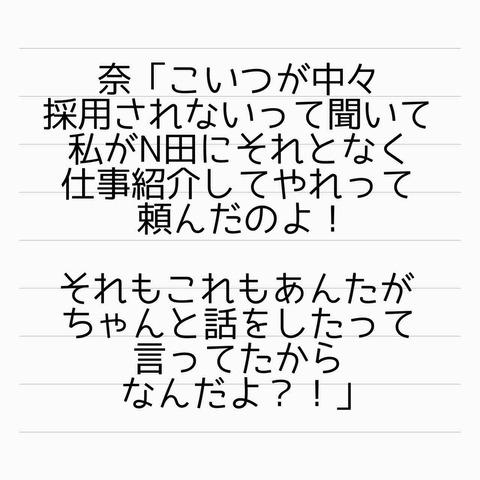 奈「こいつが中々
採用されないって聞いて
私がN田にそれとなく
仕事紹介してやれって
頼んだのよ！
それもこれもあんたが
ちゃんと話をしたって
言ってたから
なんだよ？！」